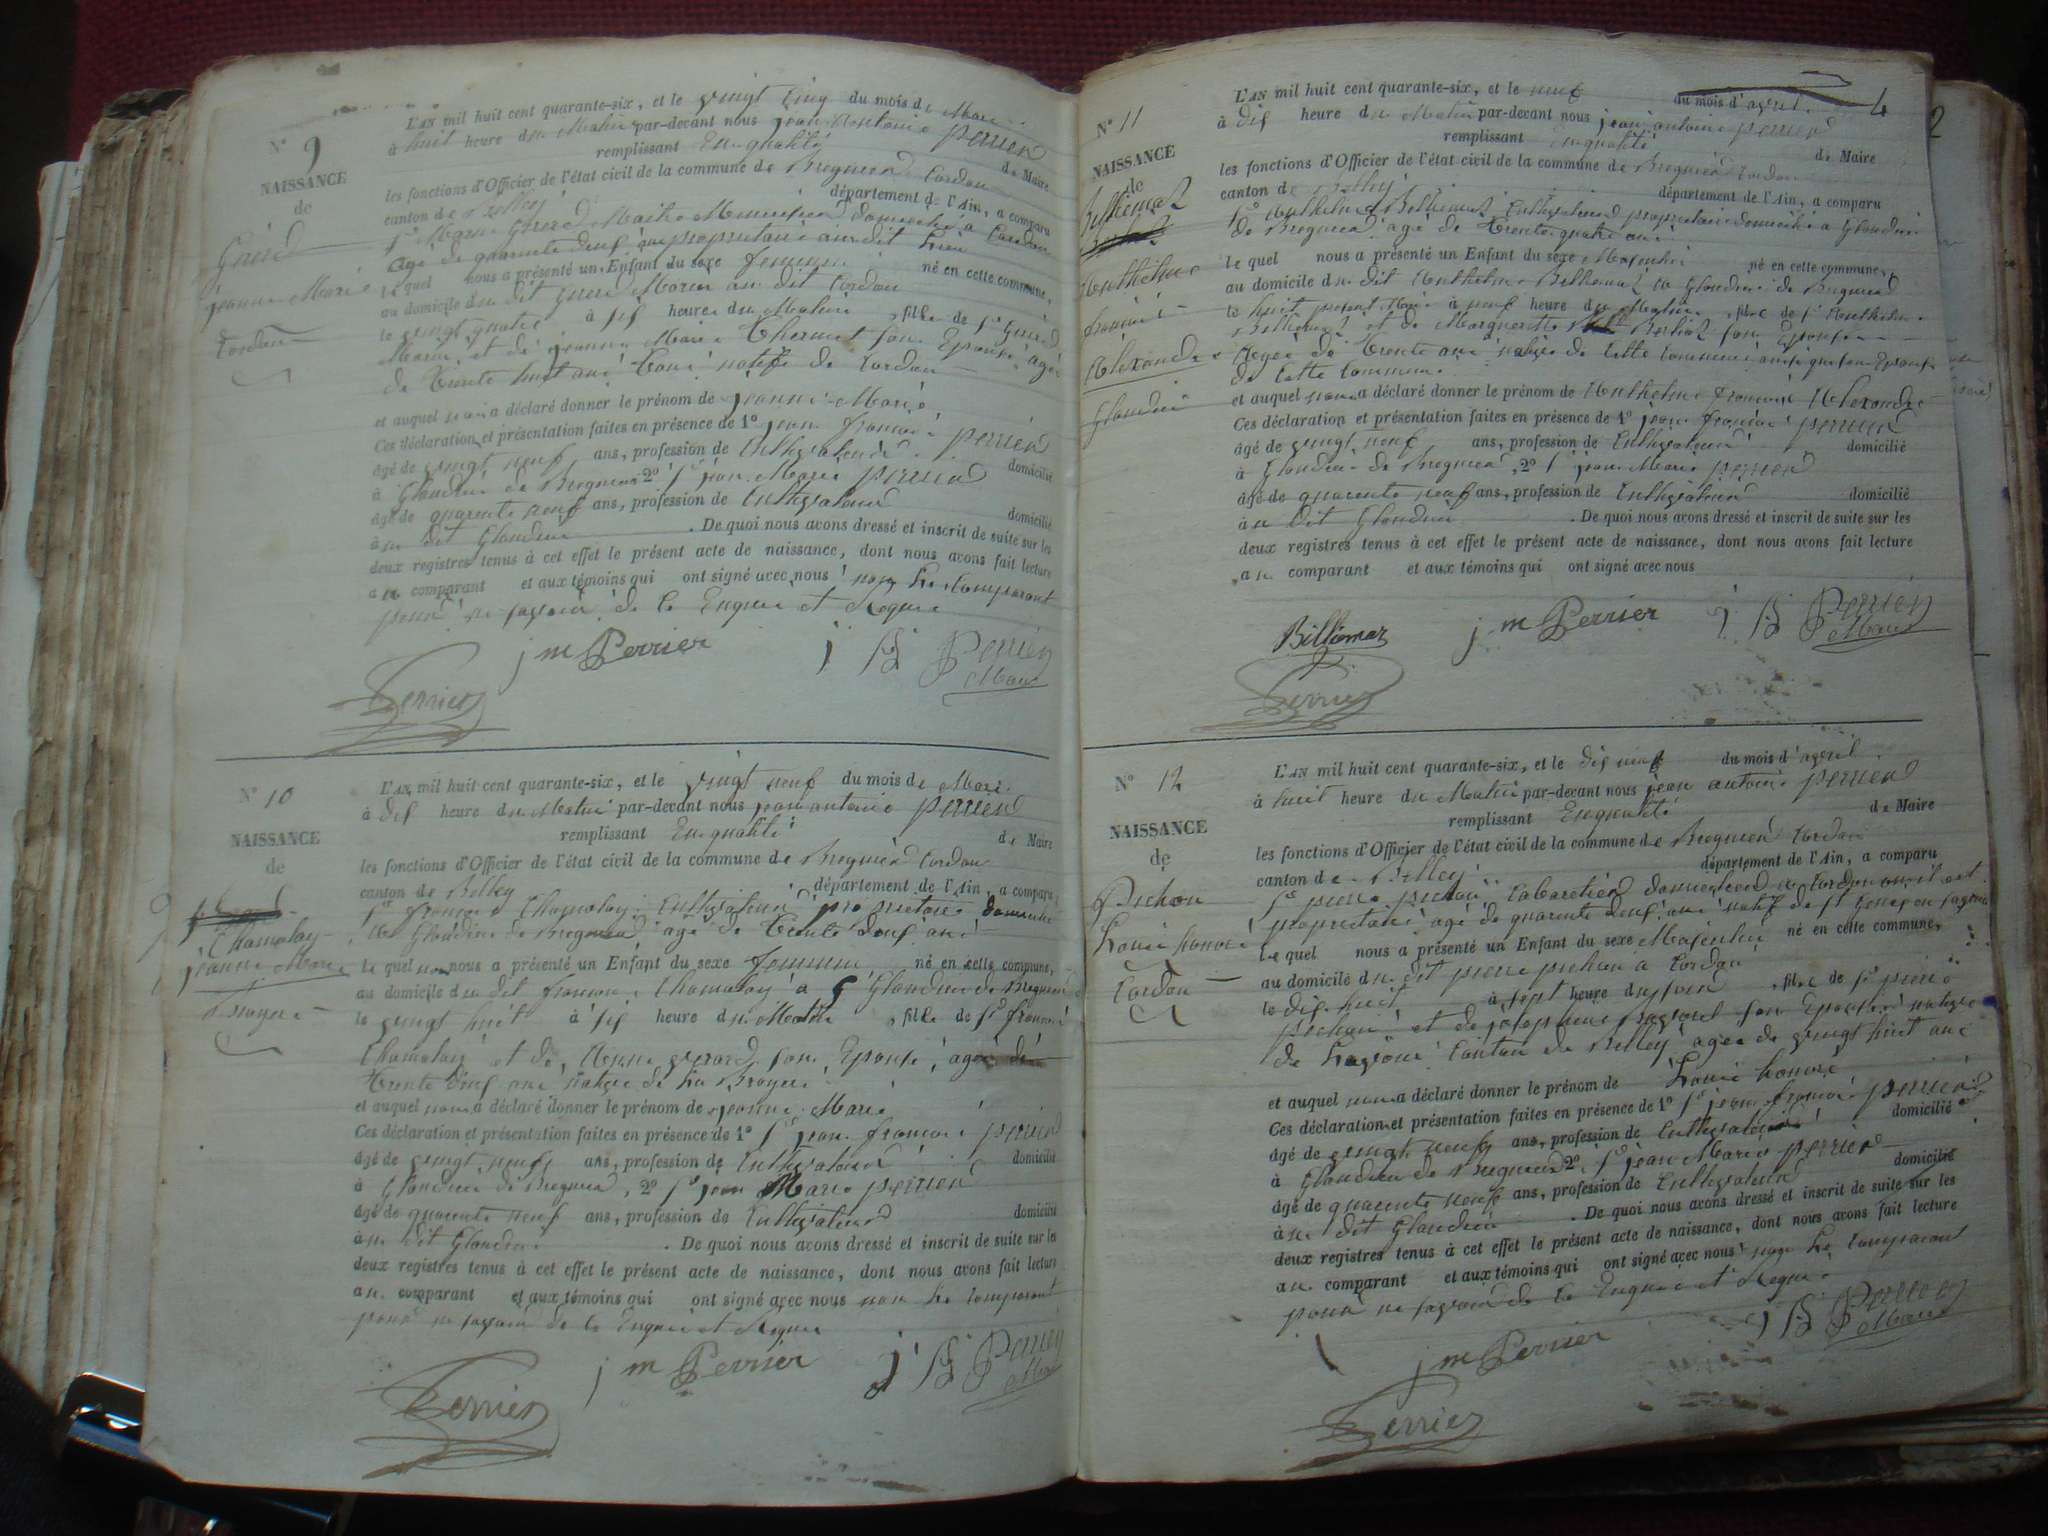 N° 9
NAISSANCE
de
Jeanne Marie
Cordon
L'AN mil huit cent quarante-six, et le vingt cinq du mois de Mars
à huit heure du Matin par-devant nous jean antoine perrier
remplissant En qualité de Maire
les fonctions d'Officier de l'état civil de la commune de Bregnier Cordon
canton de Belley département de l'Ain, a comparu
domicilié à Cordon
agé de quarante deux ans proprietaire au dit lieu
le quel nous a présenté un Enfant du sexe feminin né en cette commune,
au domicile du dit Marin au dit Cordon
le vingt quatre à six heure du Matin, fille de Sr
Marin et de jeanne Marie son Epouse, agée
de trente huit ans native de Cordon
et auquel a déclaré donner le prénom de jeanne Marie
Ces déclaration et présentation faites en présence de 1° jean françois perrier
âgé de vingt neuf ans, profession de Cultivateur domicilié
à Glandieu de Bregnier 2° Sr jean Marie perrier
âgé de quarente neuf ans, profession de Cultivateur domicilié
au dit Glandieu. De quoi nous avons dressé et inscrit de suite sur les
deux registres tenus à cet effet le présent acte de naissance, dont nous avons fait lecture
au comparant et aux témoins qui ont signé avec nous non le comparant
pour ne savoir de ce Enquis et Requis
j m Perrier j A Perrier
Maire
Perrier
N° 10
NAISSANCE
de
Chamolay
jeanne Marie
L'AN mil huit cent quarante-six, et le vingt neuf du mois de Mars
à dix heure du Matin par-devant nous jean antoine perrier
remplissant En qualité de Maire
les fonctions d'Officier de l'état civil de la commune de Bregnier Cordon
canton de Belley département de l'Ain, a comparu
Sr françois Chamolay Cultivateur proprietaire domicilié
à Glandieu de Bregnier agé de trente deux ans
le quel nous a présenté un Enfant du sexe feminin né en cette commune,
au domicile du dit françois Chamolay à Glandieu de Bregnier
le vingt huit à six heure du Matin, fille de Sr françois
Chamolay et de son Epouse, agée de
trente deux ans native de La
et auquel a déclaré donner le prénom de jeanne Marie
Ces déclaration et présentation faites en présence de 1° Sr jean françois perrier
âgé de vingt neuf ans, profession de Cultivateur domicilié
à Glandieu de Bregnier, 2° Sr jean Marie perrier
âgé de quarente neuf ans, profession de Cultivateur domicilié
au dit Glandieu. De quoi nous avons dressé et inscrit de suite sur les
deux registres tenus à cet effet le présent acte de naissance, dont nous avons fait lecture
au comparant et aux témoins qui ont signé avec nous non le comparant
pour ne savoir de ce Enquis et Requis
j m Perrier j A Perrier
Maire
Perrier
4
2
N° 11
NAISSANCE
de
Billiemaz
Anthelme
françois
Alexandre
Glandieu
L'AN mil huit cent quarante-six, et le neuf du mois d'avril
à dix heure du Matin par-devant nous jean antoine perrier
remplissant En qualité de Maire
les fonctions d'Officier de l'état civil de la commune de Bregnier Cordon
canton de Belley département de l'Ain, a comparu
Sr Anthelme Billiemaz Cultivateur proprietaire domicilié à Glandieu
de Bregnier agé de trente quatre ans
le quel nous a présenté un Enfant du sexe Masculin né en cette commune,
au domicile du dit Anthelme Billiemaz à Glandieu de Bregnier
le huit present mois à neuf heure du Matin, fils de Sr Anthelme
Billiemaz et de Marguerite Berlioz son Epouse
agée de trente ans native de cette commune ainsi que son Epoux
de cette commune
et auquel a déclaré donner le prénom de Anthelme françois Alexandre
Ces déclaration et présentation faites en présence de 1° jean françois perrier
âgé de vingt neuf ans, profession de Cultivateur domicilié
à Glandieu de Bregnier, 2° Sr jean Marie perrier
âgé de quarente neuf ans, profession de Cultivateur domicilié
au dit Glandieu. De quoi nous avons dressé et inscrit de suite sur les
deux registres tenus à cet effet le présent acte de naissance, dont nous avons fait lecture
au comparant et aux témoins qui ont signé avec nous
Billiemaz j m Perrier j A Perrier
Maire
Perrier
N° 12
NAISSANCE
de
Pichon
Louis honoré
Cordon
L'AN mil huit cent quarante-six, et le dix neuf du mois d'avril
à huit heure du Matin par-devant nous jean antoine perrier
remplissant En qualité de Maire
les fonctions d'Officier de l'état civil de la commune de Bregnier Cordon
canton de Belley département de l'Ain, a comparu
Sr pierre pichon Cabaretier à Cordon
proprietaire agé de quarente deux ans natif de St Genis en savoie
le quel nous a présenté un Enfant du sexe Masculin né en cette commune,
au domicile du dit pierre pichon à Cordon
le dix huit à sept heure du soir, fils de Sr pierre
pichon et de josephine son Epouse native
de Canton de Belley agée de vingt huit ans
et auquel a déclaré donner le prénom de Louis honoré
Ces déclaration et présentation faites en présence de 1° Sr jean françois perrier
âgé de vingt neuf ans, profession de Cultivateur domicilié
à Glandieu de Bregnier 2° Sr jean Marie perrier
âgé de quarente neuf ans, profession de Cultivateur domicilié
au dit Glandieu. De quoi nous avons dressé et inscrit de suite sur les
deux registres tenus à cet effet le présent acte de naissance, dont nous avons fait lecture
au comparant et aux témoins qui ont signé avec nous non le comparant
pour ne savoir de ce Enquis et Requis
j m Perrier j A Perrier
Maire
Perrier